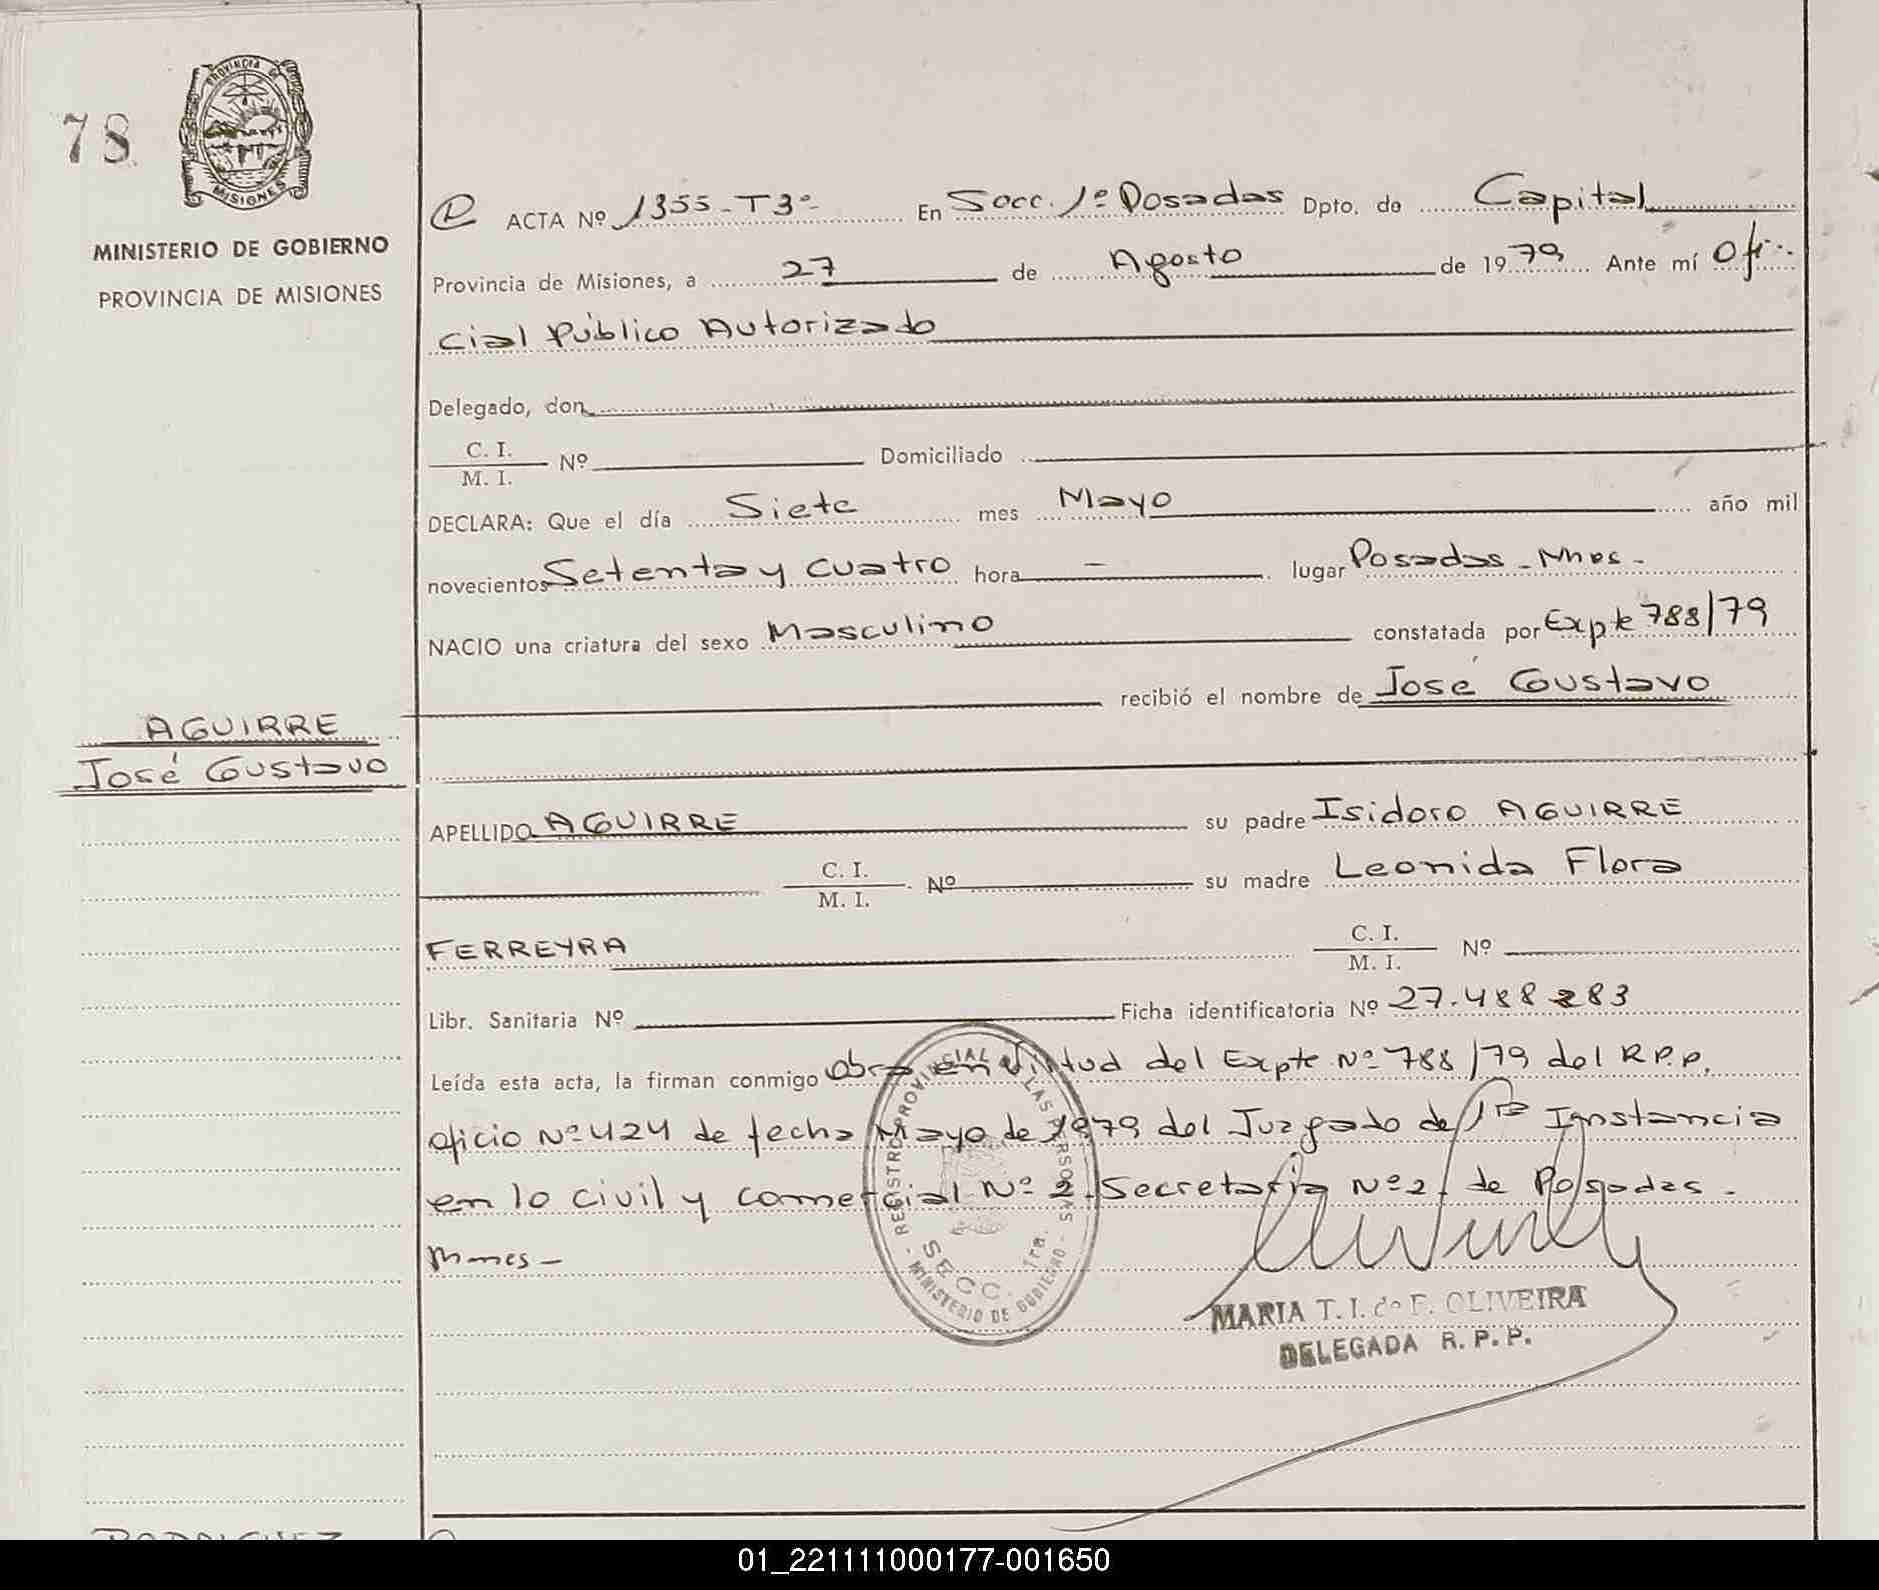 78
PROVINCIA DE
MISIONES
MINISTERIO DE GOBIERNO
PROVINCIA DE MISIONES
ACTA Nº 1355-T3º- En Secc. 1º Posadas Dpto. de Capital
Provincia de Misiones, a 27 de Agosto de 1979 Ante mí Ofi-
cial Público Autorizado
Delegado, don
C. I.
M. I. Nº Domiciliado
DECLARA: Que el día Siete mes Mayo año mil
novecientos Setenta y cuatro hora - lugar Posadas - Mnes -
NACIO una criatura del sexo Masculino constatada por Expte 788/79
recibió el nombre de José Gustavo
AGUIRRE
José Gustavo
APELLIDO AGUIRRE su padre Isidoro AGUIRRE
C. I.
M. I. Nº su madre Leonida Flora
FERREYRA C. I.
M. I. Nº
Libr. Sanitaria Nº Ficha identificatoria Nº 27.488.283
Leída esta acta, la firman conmigo Obra en virtud del Expte Nº 788/79 del R.P.P.
oficio Nº 424 de fecha Mayo de 1979 del Juzgado de 1ra Instancia
en lo civil y comercial Nº 2. Secretaría Nº 2. de Posadas -
Mnes -
REGISTRO PROVINCIAL LAS PERSONAS
SECC. 1ra.
MINISTERIO DE GOBIERNO
MARIA T. I. de F. OLIVEIRA
DELEGADA R. P. P.
RODRIGUEZ
01_221111000177-001650